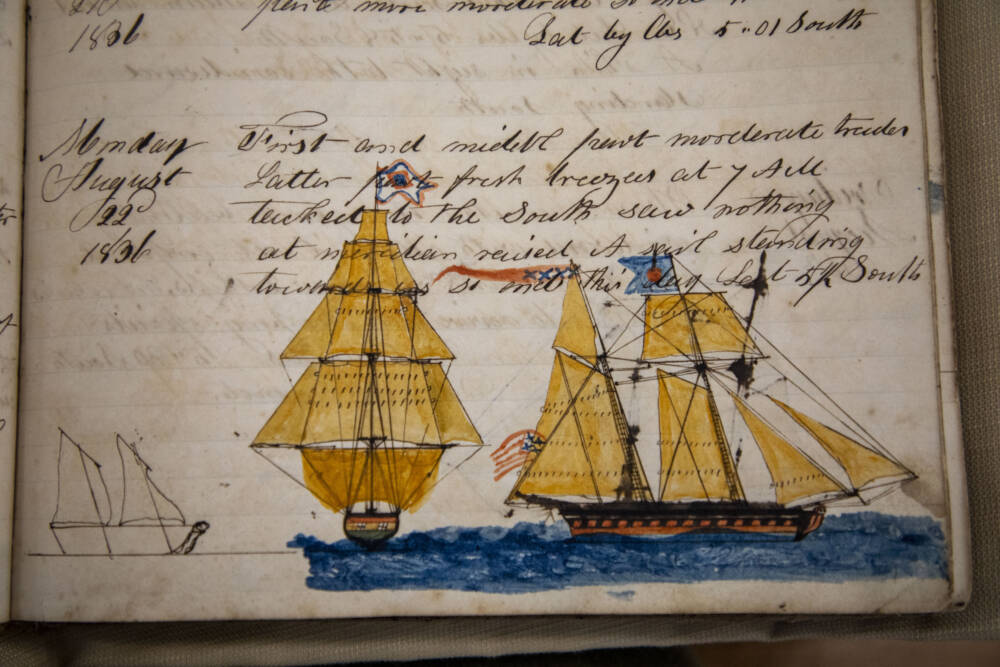 part more morderate so end
1836 Lat by Obs 5"01 South
Monday First and midell part morderate trades
August Latter part fresh breezes at 7 AM
22 tacked to the South saw nothing
1836 at meridian raised A sail standing
towards us so ends this day Lat South